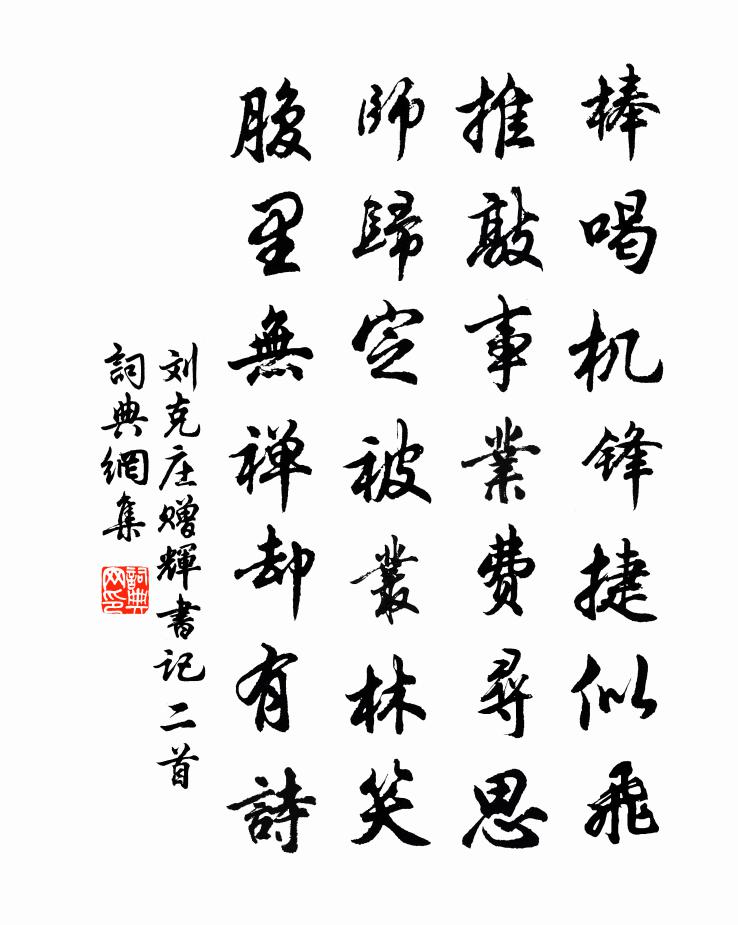 棒喝机锋捷似飛
推敲事業費尋思
師歸定被叢林笑
腹里無禅却有詩
刘克庄赠輝書记二首
詞典網集
詞典網印